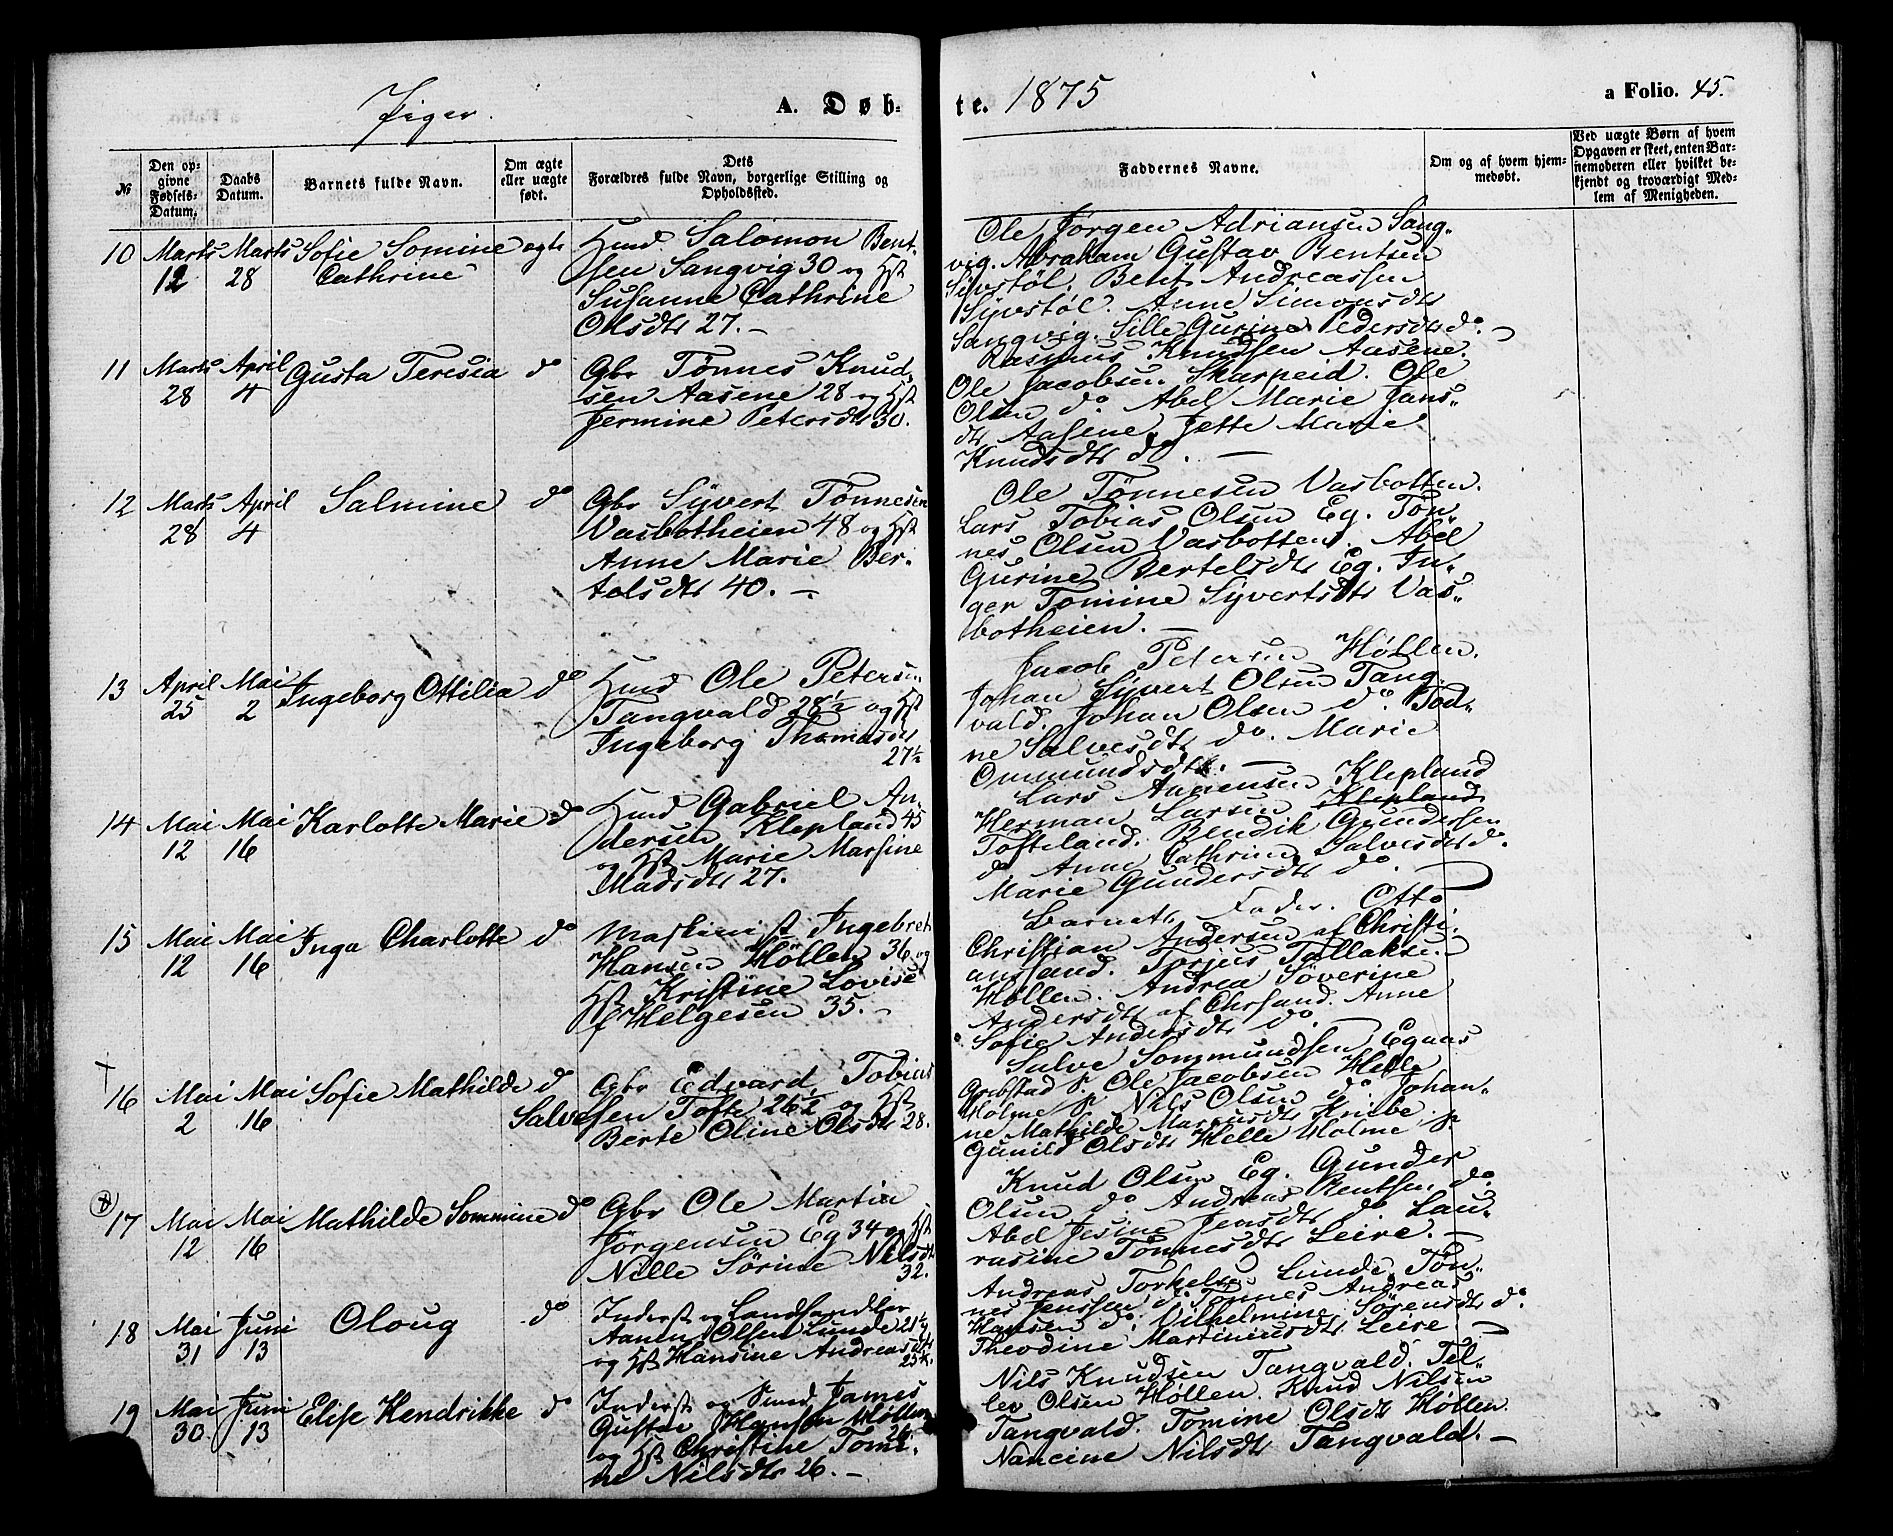 Piger.
A. Døb-
te. 1875
a Folio. 45.
№
Den op-
givne
Fødsels-
Datum.
Daabs
Datum.
Barnets fulde Navn.
Om ægte
eller uægte
født.
Dets
Forældres fulde Navn, borgerlige Stilling og
Opholdssted.
Faddernes Navne.
Om og af hvem hjem-
medøbt.
Ved uægte Børn af hvem
Opgaven er skeet, enten Bar-
nemoderen eller hvilket be-
kjendt og troværdigt Med-
lem af Menigheden.
10 Marts 12 Marts 28 Sofie Somine
Cathrine
ægte
Salomon Bent-
sen Sangvig 30 og Hst
Susanne Cathrine
Olsdtr 27. –
Ole Jørgen Adriansen Sang-
vig. Abraham Gustav Bentsen
Syvstøl. Bent Andreassen
Syvstøl. Anne Simonsdtr
Sangvig. Sille Gurine Pedersdtr do. –
11 Marts 28 April 4 Gusta Teresia do
Gbr Tønnes Knud-
sen Aasene 28 og Hst
Jermine Petersdtr 30.
Rasmus Knudsen Aasene.
Ole Jacobsen Skarpeid. Ole
Olsen do. Abel Marie Jans-
dtr Aasene. Jette Marie
Knudsdtr do. –
12 Marts 28 April 4 Salmine do
Gbr Syvert Tønnesen
Vasbotheien 48 og Hst
Anne Marie Ber-
tolsdtr 40. –
Ole Tønnesen Vasbotten.
Lars Tobias Olsen Eg. Tøn-
nes Olsen Vasbotten. Abel
Gurine Bertelsdtr Eg. In-
ger Tomine Syvertsdtr Vas-
botheien. –
13 April 25 Mai 2 Ingeborg Ottilia do
Ole Petersen
Tangvald 28½ og Hst
Ingeborg Thomasdtr
27½
Jacob Petersen Høllen.
Johan Syvert Olsen Tang-
vald. Johan Olsen do. Tod-
ne Salvesdtr do. Marie
Ommundsdtr. –
14 Mai 12 Mai 16 Karlotte Marie do
Gabriel An-
dersen Klepland 45
og Hst Marie Marsine
Madsdtr 27.
Lars Klepland
Herman Larsen Klepland
Tofteland. Bendik Gundersen
do. Anne Cathrine Salvesdtr do.
Marie Gundersdtr do.
15 Mai 12 Mai 16 Inga Charlotte do
Maskinist Ingebret
Hansen Høllen 36 og
Hst Kristine Lovise
f Helgesen 35. –
Barnets Fader. Otto
Christian Andersen af Christi-
ansand. Torjus Tallaksen
Høllen. Andrea Søverine
Andersdtr af Chrsand. Anne
Sofie Andersdtr do.
16 Mai 2 Mai 16 Sofie Mathilde do
Gbr Edvard Tobias
Salvesen Tofte 26½ og Hst
Berte Oline Olsdtr 28.
Salve Sommundsen Egaas
Ole Jacobsen Helle
Holme p. Nils Olsen do. Johan-
ne Mathilde
Gunild Olsdtr Helle Holme p
17 Mai 12 Mai 16 Mathilde Sommine do
Gbr Ole Martin
Jørgensen Eg 34 og Hst
Nille Sørine Nilsdtr
32.
Knud Olsen Eg. Gunder
Olsen do. Andreas Bentsen do.
Abel Jesine Jensdtr do Lau-
rasine Tønnesdtr Leire. –
18 Mai 31 Juni 13 Oloug do
Inderst og Landhandler
Aanen Olsen Lunde 21½
og Hst Hansine Andreasdtr
25¾.
Andreas Torkelsen Lunde. Tøn-
nes Jenssen do. Tønnes Andreas
Hansen do. Vilhelmine Sørensdtr do.
Theodine Martiniusdtr Leire –
19 Mai 30 Juni 13 Elise Hendrikke do
Inderst og James
Gustav Hansen Høllen
26.
og Hst Christine Tomi-
ne Nilsdtr 26. –
Nils Knudsen Tangvald. Tel-
lev Olsen Høllen. Knud Nilsen
Tangvald. Tomine Olsdtr Høllen.
Nancine Nilsdtr Tangvald. –